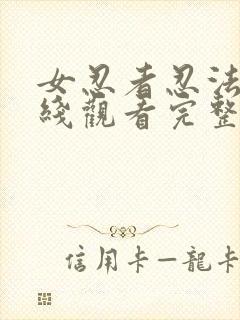 女忍者忍法
綫觀看完整
信用卡—龍卡